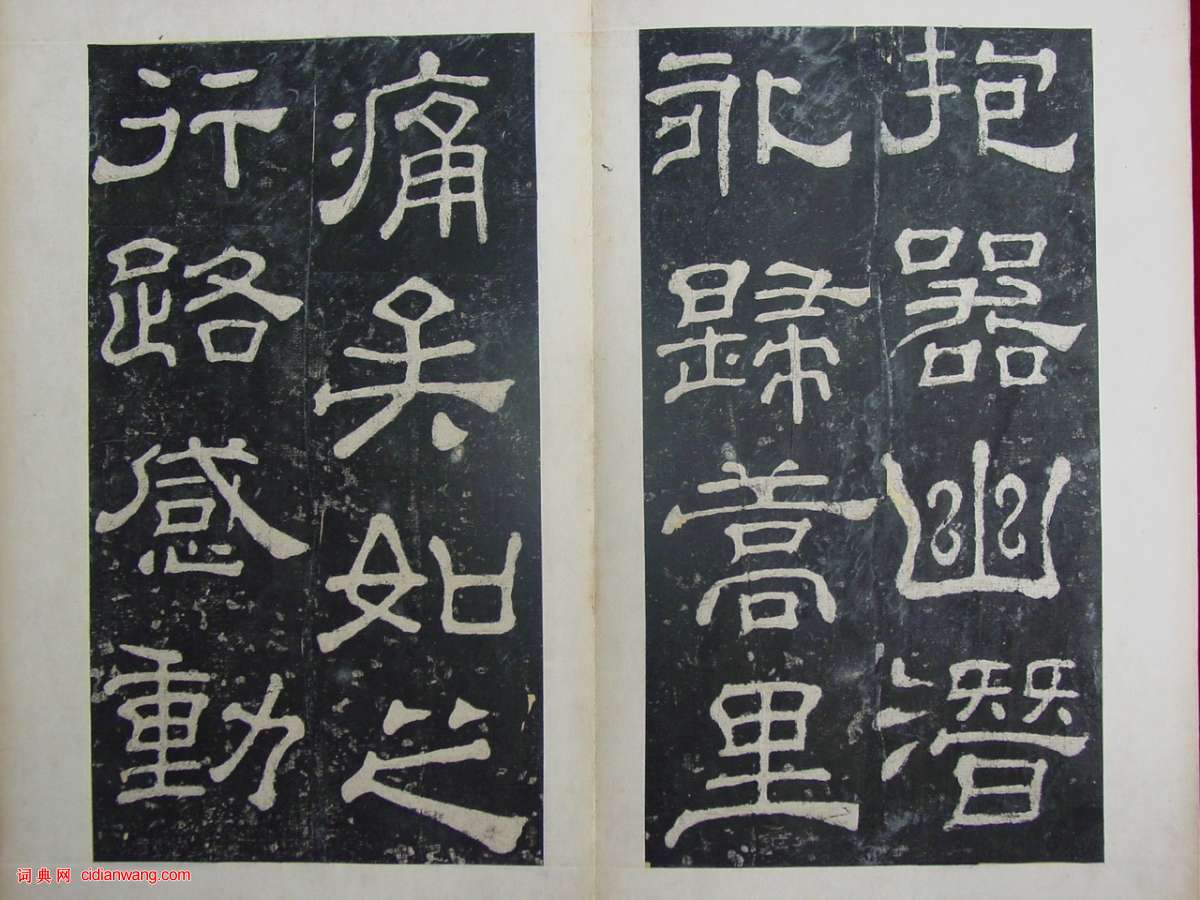 抱器幽潛
永歸蒿里
痛矣如之
行路感動
词典网 cidianwang.com